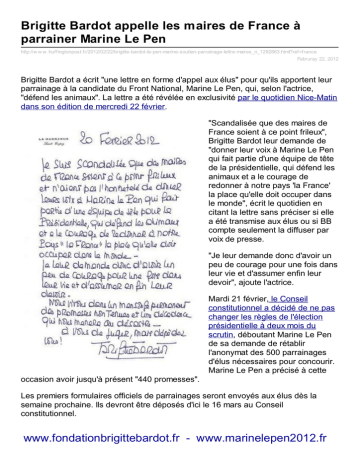 Brigitte Bardot appelle les maires de France à
parrainer Marine Le Pen
February 22, 2012
Brigitte Bardot a écrit "une lettre en forme d'appel aux élus" pour qu'ils apportent leur
parrainage à la candidate du Front National, Marine Le Pen, qui, selon l'actrice,
"défend les animaux". La lettre a été révélée en exclusivité par le quotidien Nice-Matin
dans son édition de mercredi 22 février.
20 Février 2012
Je suis scandalisée que des maires
de France soient à ce point frileux
et n'aient pas l'honnêteté de donner
leurs voix à Marine Le Pen qui fait
partie d'une équipe de tête pour la
Présidentielle, qui défend les animaux
et a le courage de redonner à notre
Pays "La France" la place qu'elle doit
occuper dans le monde.
Je leur demande donc d'avoir un
peu de courage pour une fois dans
leur vie et d'assumer enfin leur
devoir.
Nous vivons dans un mensonge permanent
des promesses non tenues et une décadence
qui nous mènera au désastre
"Scandalisée que des maires de
France soient à ce point frileux",
Brigitte Bardot leur demande de
"donner leur voix à Marine Le Pen
qui fait partie d'une équipe de tête
de la présidentielle, qui défend les
animaux et a le courage de
redonner à notre pays 'la France'
la place qu'elle doit occuper dans
le monde", écrit le quotidien en
citant la lettre sans préciser si elle
a été transmise aux élus ou si BB
compte seulement la diffuser par
voix de presse.
"Je leur demande donc d'avoir un
peu de courage pour une fois dans
leur vie et d'assumer enfin leur
devoir", ajoute l'actrice.
Mardi 21 février, le Conseil
constitutionnel a décidé de ne pas
changer les règles de l'élection
présidentielle à deux mois du
scrutin, déboutant Marine Le Pen
de sa demande de rétablir
l'anonymat des 500 parrainages
d'élus nécessaires pour concourir.
Marine Le Pen a précisé à cette
occasion avoir jusqu'à présent "440 promesses".
Les premiers formulaires officiels de parrainages seront envoyés aux élus dès la
semaine prochaine. Ils devront être déposés d'ici le 16 mars au Conseil
constitutionnel.
www.fondationbrigittebardot.fr - www.marinelepen2012.fr